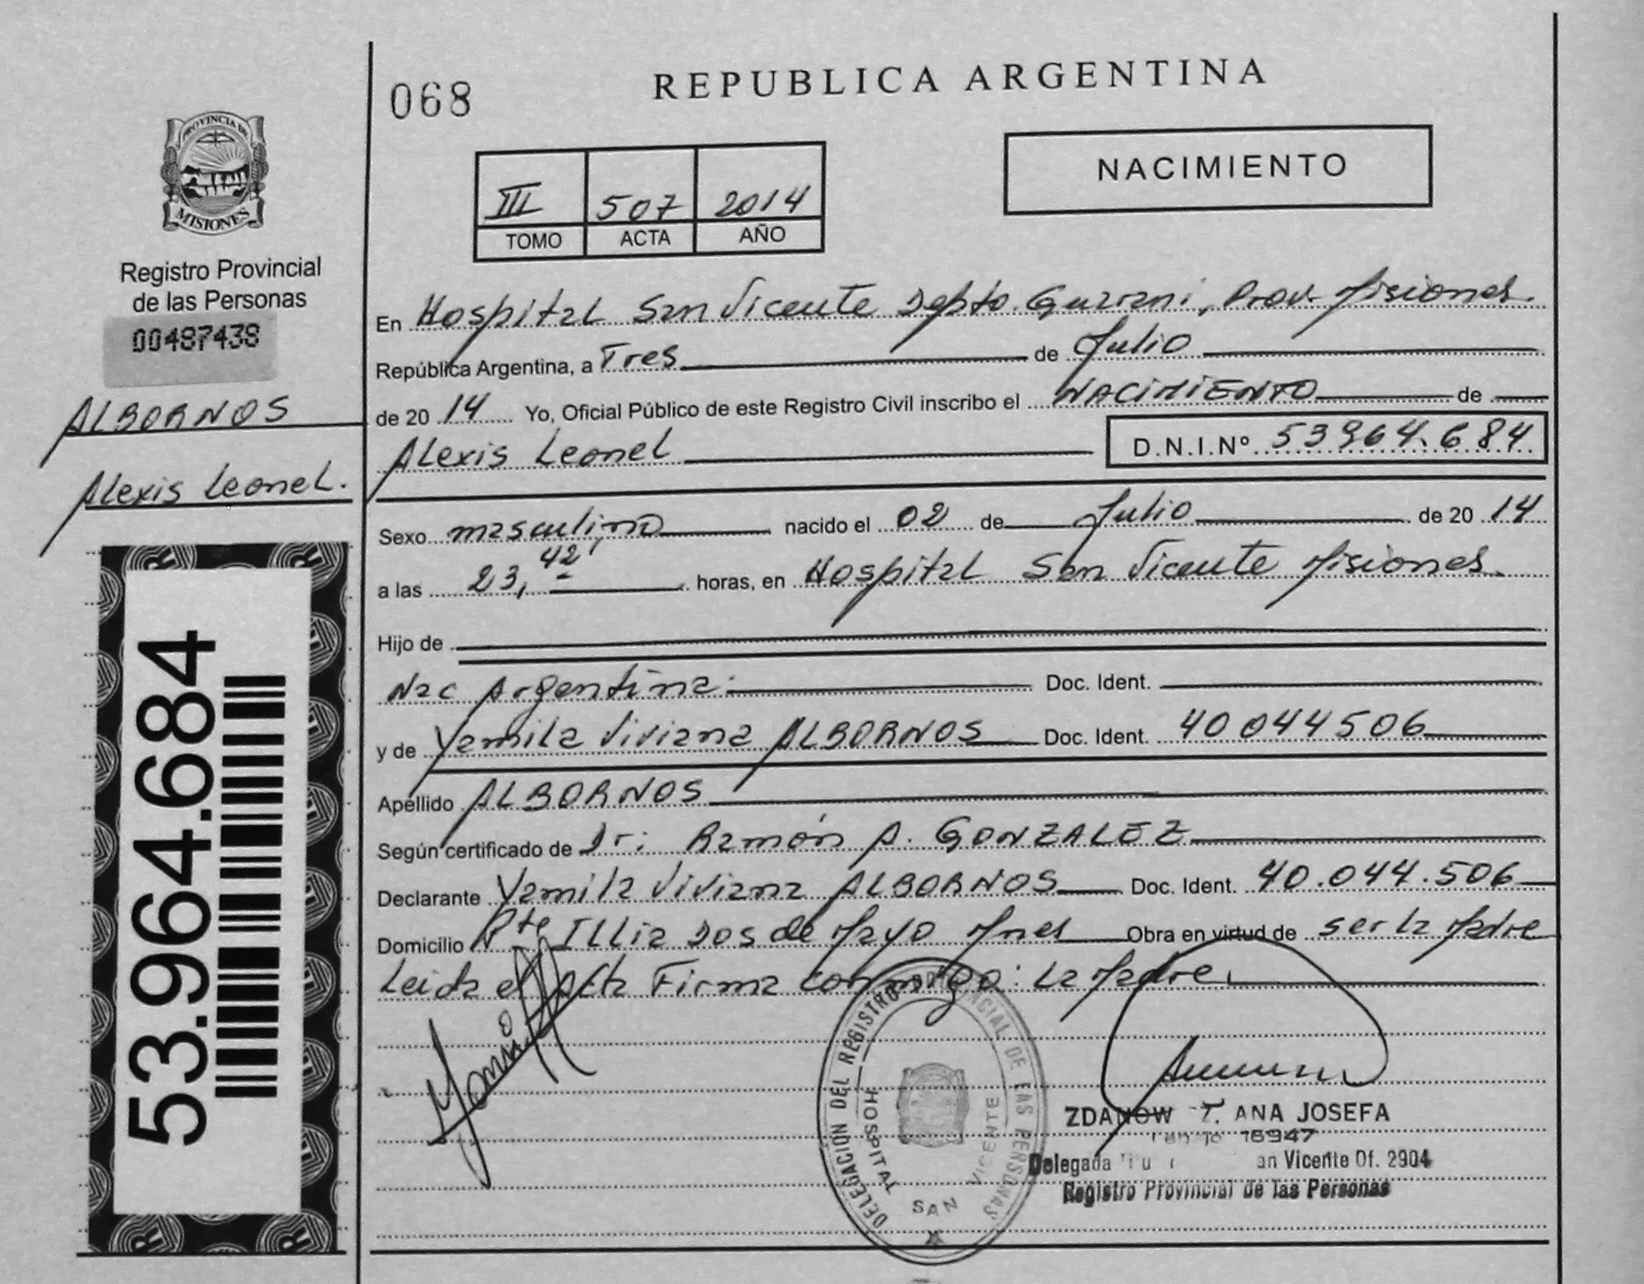 068
REPUBLICA ARGENTINA
PROVINCIA DE
MISIONES
Registro Provincial
de las Personas
00487438
ALBORNOS
Alexis Leonel.
53.964.684
III 507 2014
TOMO ACTA AÑO
NACIMIENTO
En Hospital San Vicente Depto. Guarani, Prov. Misiones.
República Argentina, a Tres de Julio
de 20 14 Yo, Oficial Público de este Registro Civil inscribo el NACIMIENTO de
Alexis Leonel D.N.I.Nº 53964.684
Sexo masculino nacido el 02 de Julio de 20 14
a las 23,42 horas, en Hospital San Vicente Misiones.
Hijo de
Nac Argentina. Doc. Ident.
y de Yamila Viviana ALBORNOS Doc. Ident. 40044506
Apellido ALBORNOS
Según certificado de Dr: Ramón A. GONZALEZ
Declarante Yamila Viviana ALBORNOS Doc. Ident. 40.044.506
Domicilio Pte ILLia Dos de Mayo Mnes Obra en virtud de ser la Madre
Leida el Acta Firma conmigo: La Madre.
DELEGACIÓN DEL REGISTRO PROVINCIAL DE LAS PERSONAS
HOSPITAL SAN VICENTE
ZDANOW T. ANA JOSEFA
16947
Delegada Vicente Of. 2904
Registro Provincial de las Personas